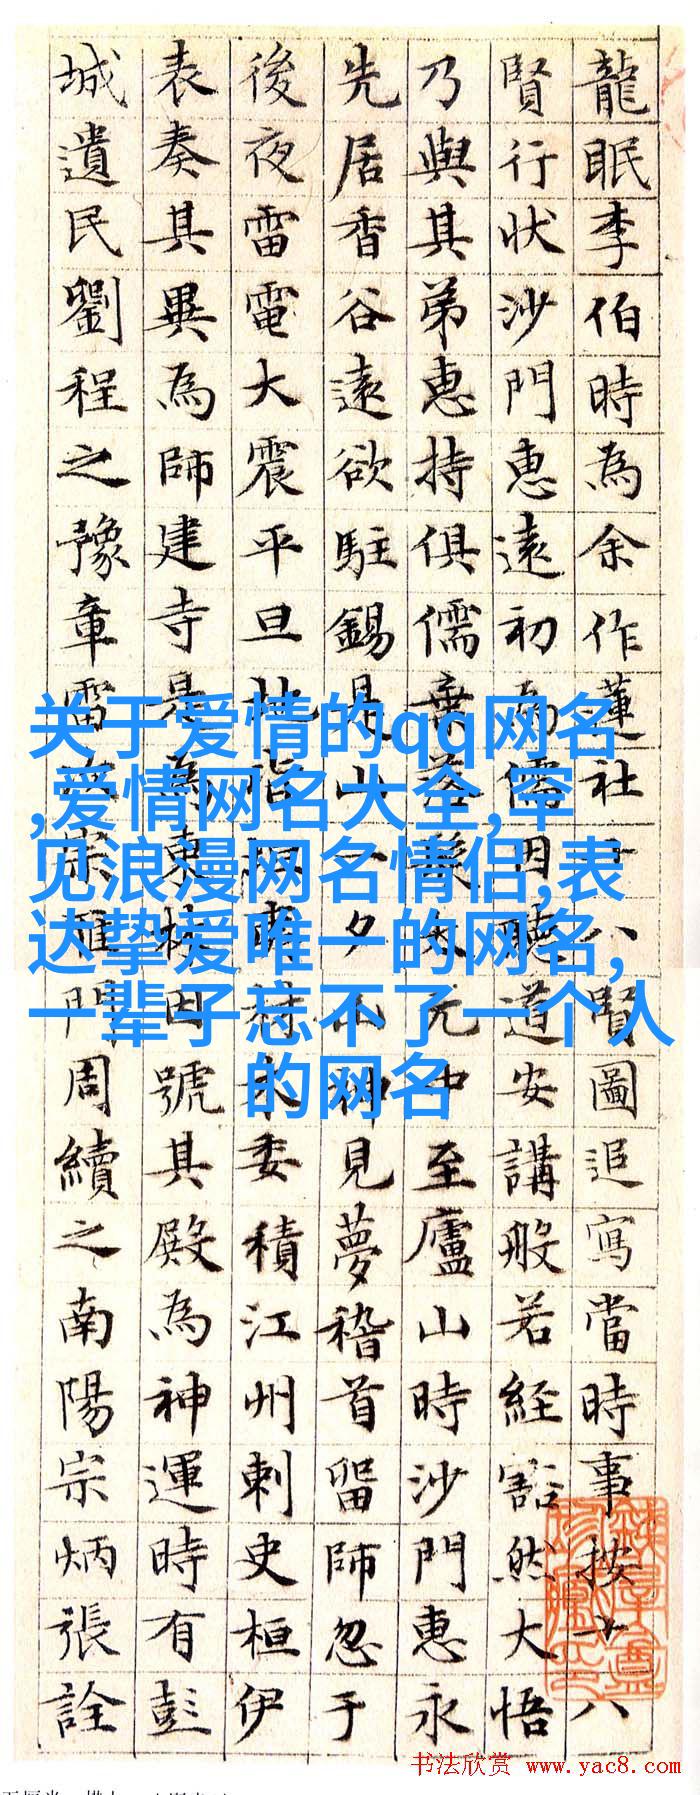 龍眠李伯時為余作蓮社十八賢圖追寫當時事按十八
賢行狀沙門惠遠初為儒因聽道安講般若經豁然大悟
乃與其弟惠持俱儒弃落髮太元中至廬山時沙門惠永
先居香谷遠欲駐錫是山一夕山神見夢稽首留師忽于
後夜雷電大震平旦地皆坦夷材木委積江州刺史桓伊
表奏其異為師建寺是為東林因號其殿為神運時有彭
城遺民劉程之豫章雷次宗雁門周續之南陽宗炳張詮
关于爱情的qq网名
,爱情网名大全,罕
见浪漫网名情侣,表
达挚爱唯一的网名,
一辈子忘不了一个人
的网名
书法欣赏 www.yac8.com